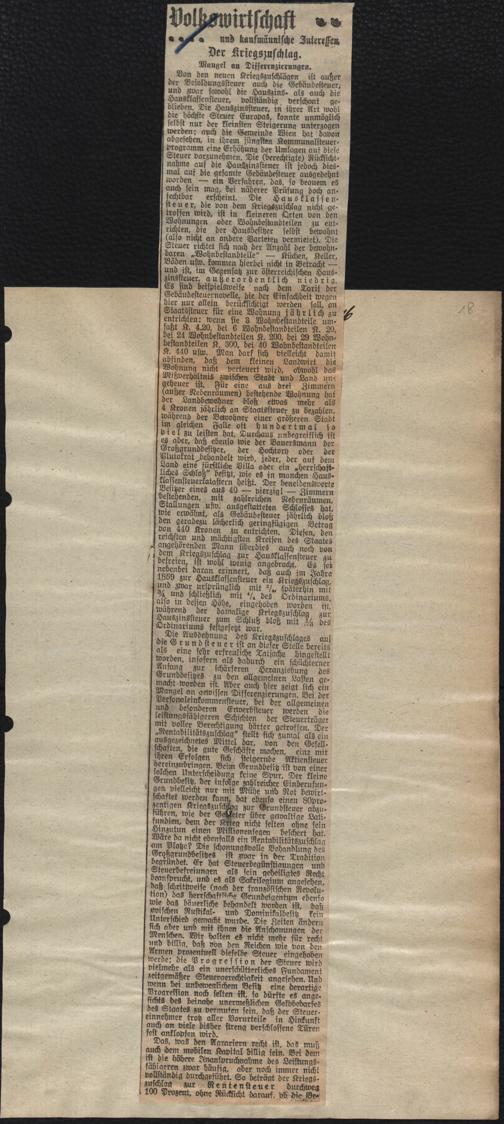 Volkswirtschaft
und kaufmännische Interessen.
Der Kriegszuschlag.
Mangel an Differenzierungen.
Von den neuen Kriegszuschlägen ist außer
der Besoldungssteuer auch die Gebäudesteuer,
und zwar sowohl die Hauszins- als auch die
Hausklassensteuer, vollständig verschont ge-
blieben. Die Hauszinssteuer, in ihrer Art wohl
die höchste Steuer Europas, konnte unmöglich
selbst nur der kleinsten Steigerung unterzogen
werden; auch die Gemeinde Wien hat davon
abgesehen, in ihrem jüngsten Kommunalsteuer-
programm eine Erhöhung der Umlagen auf diese
Steuer vorzunehmen. Die (berechtigte) Rücksicht-
nahme auf die Hauszinssteuer ist jedoch dies-
mal auf die gesamte Gebäudesteuer ausgedehnt
worden — ein Verfahren, das, so bequem es
auch sein mag, bei näherer Prüfung doch an-
fechtbar erscheint. Die Hausklassen-
steuer, die von dem Kriegszuschlag nicht ge-
troffen wird, ist in kleineren Orten von den
Wohnungen oder Wohnbestandteilen zu ent-
richten, die der Hausbesitzer selbst bewohnt
(also nicht an andere Parteien vermietet). Die
Steuer richtet sich nach der Anzahl der bewohn-
baren „Wohnbestandteile" — Küchen, Keller,
Böden usw. kommen hierbei nicht in Betracht —
und ist, im Gegensatz zur österreichischen Haus-
zinssteuer, außerordentlich niedrig.
Es sind beispielsweise nach dem Tarif der
Gebäudesteuernovelle, die der Einfachheit wegen
hier nur allein berücksichtigt werden soll, an
Staatssteuer für eine Wohnung jährlich zu
entrichten: wenn sie 3 Wohnbestandteile um-
faßt K. 4.20, bei 6 Wohnbestandteilen K. 20,
bei 24 Wohnbestandteilen K. 200, bei 29 Wohn-
bestandteilen K. 300, bei 40 Wohnbestandteilen
K. 440 usw. Man darf sich vielleicht damit
abfinden, daß dem kleinen Landwirt die
Wohnung nicht verteuert wird, obwohl das
Mißverhältnis zwischen Stadt und Land un-
geheuer ist. Für eine aus drei Zimmern
(außer Nebenräumen) bestehende Wohnung hat
der Landbewohner bloß etwas mehr als
4 Kronen jährlich an Staatssteuer zu bezahlen,
während der Bewohner einer größeren Stadt
im gleichen Falle oft hundertmal so
viel zu leisten hat. Durchaus unbegreiflich ist
es aber, daß ebenso wie der Bauersmann der
Großgrundbesitzer, der Hochtory oder der
Plutokrat behandelt wird, jeder, der auf dem
Land eine fürstliche Villa oder ein „herrschaft-
liches Schloß" besitzt, wie es in manchen Haus-
klassensteuerkatastern heißt. Der beneidenswerte
Besitzer eines aus 40 — vierzig! — Zimmern
bestehenden, mit zahlreichen Nebenräumen,
Stallungen usw. ausgestatteten Schlosses hat,
wie erwähnt, als Gebäudesteuer jährlich bloß
den geradezu lächerlich geringfügigen Betrag
von 440 Kronen zu entrichten. Diesen, den
reichsten und mächtigsten Kreisen des Staates
angehörenden Mann überdies auch noch von
dem Kriegszuschlag zur Hausklassensteuer zu
befreien, ist wohl wenig angebracht. Es sei
nebenbei daran erinnert, daß auch im Jahre
1859 zur Hausklassensteuer ein Kriegszuschlag,
und zwar ursprünglich mit späterhin mit
und schließlich mit des Ordinariums,
also in dessen Höhe, eingehoben worden ist,
während der damalige Kriegszuschlag zur
Hauszinssteuer zum Schluß bloß mit des
Ordinariums festgesetzt war.
Die Ausdehnung des Kriegszuschlages auf
die Grundsteuer ist an dieser Stelle bereits
als eine sehr erfreuliche Tatsache hingestellt
worden, insofern als dadurch ein schüchterner
Anfang zur schärferen Heranziehung des
Grundbesitzes zu den allgemeinen Lasten ge-
macht worden ist. Aber auch hier zeigt sich ein
Mangel an gewissen Differenzierungen. Bei der
Personaleinkommensteuer, bei der allgemeinen
und besonderen Erwerbsteuer werden die
leistungsfähigeren Schichten der Steuerträger
mit voller Berechtigung härter getroffen. Der
„Rentabilitätszuschlag" stellt sich zumal als ein
ausgezeichnetes Mittel dar, von den Gesell-
schaften, die gute Geschäfte machen, eine mit
ihren Erfolgen sich steigernde Aktiensteuer
hereinzubringen. Beim Grundbesitz ist von einer
solchen Unterscheidung keine Spur. Der kleine
Grundbesitz, der infolge zahlreicher Einberufun-
gen vielleicht nur mit Mühe und Not bewirt-
schaftet werden kann, hat ebenso einen 80pro-
zentigen Kriegszuschlag zur Grundsteuer abzu-
führen, wie der Gebieter über gewaltige Lati-
fundien, dem der Krieg nicht selten ohne sein
Hinzutun einen Millionensegen beschert hat.
Wäre da nicht ebenfalls ein Rentabilitätszuschlag
am Platze? Die schonungsvolle Behandlung des
Großgrundbesitzes ist zwar in der Tradition
begründet. Er hat Steuerbegünstigungen und
Steuerbefreiungen als sein geheiligtes Recht
beansprucht, und es als Sakrilegium angesehen,
daß schrittweise (nach der französischen Revolu-
tion) das herrschaftliche Grundeigentum ebenso
wie das bäuerliche behandelt worden ist, daß
zwischen Rustikal- und Dominikalbesitz kein
Unterschied gemacht wurde. Die Zeiten ändern
sich aber und mit ihnen die Anschauungen der
Menschen. Wir halten es nicht mehr für recht
und billig, daß von den Reichen wie von den
Armen prozentuell dieselbe Steuer eingehoben
werde; die Progression der Steuer wird
vielmehr als ein unerschütterliches Fundament
zeitgemäßer Steuergerechtigkeit angesehen. Und
wenn bei unbeweglichem Besitz eine derartige
Progression noch selten ist, so dürfte es ange-
sichts des beinahe unermeßlichen Geldbedarfes
des Staates zu vermuten sein, daß der Steuer-
einnehmer trotz aller Vorurteile in Hinkunft
auch an viele bisher streng verschlossene Türen
fest anklopfen wird.
Das, was den Agrariern recht ist, das muß
auch dem mobilen Kapital billig sein. Bei dem
ist die höhere Inanspruchnahme des Leistungs-
fähigeren zwar häufig, aber noch immer nicht
vollständig durchgeführt. So beträgt der Kriegs-
zuschlag zur Rentensteuer durchweg
100 Prozent, ohne Rücksicht darauf, ob die Be-
18